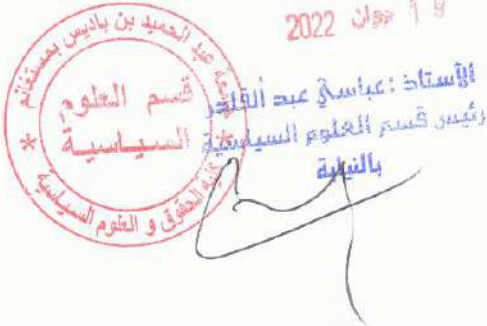 19 جوان 2022
جامعة عبد الحميد بن باديس بمستغانم
قسم العلوم
السياسية
كلية الحقوق و العلوم السياسية
الأستاذ : عباسي عبد القادر
رئيس قسم العلوم السياسية
بالنيابة